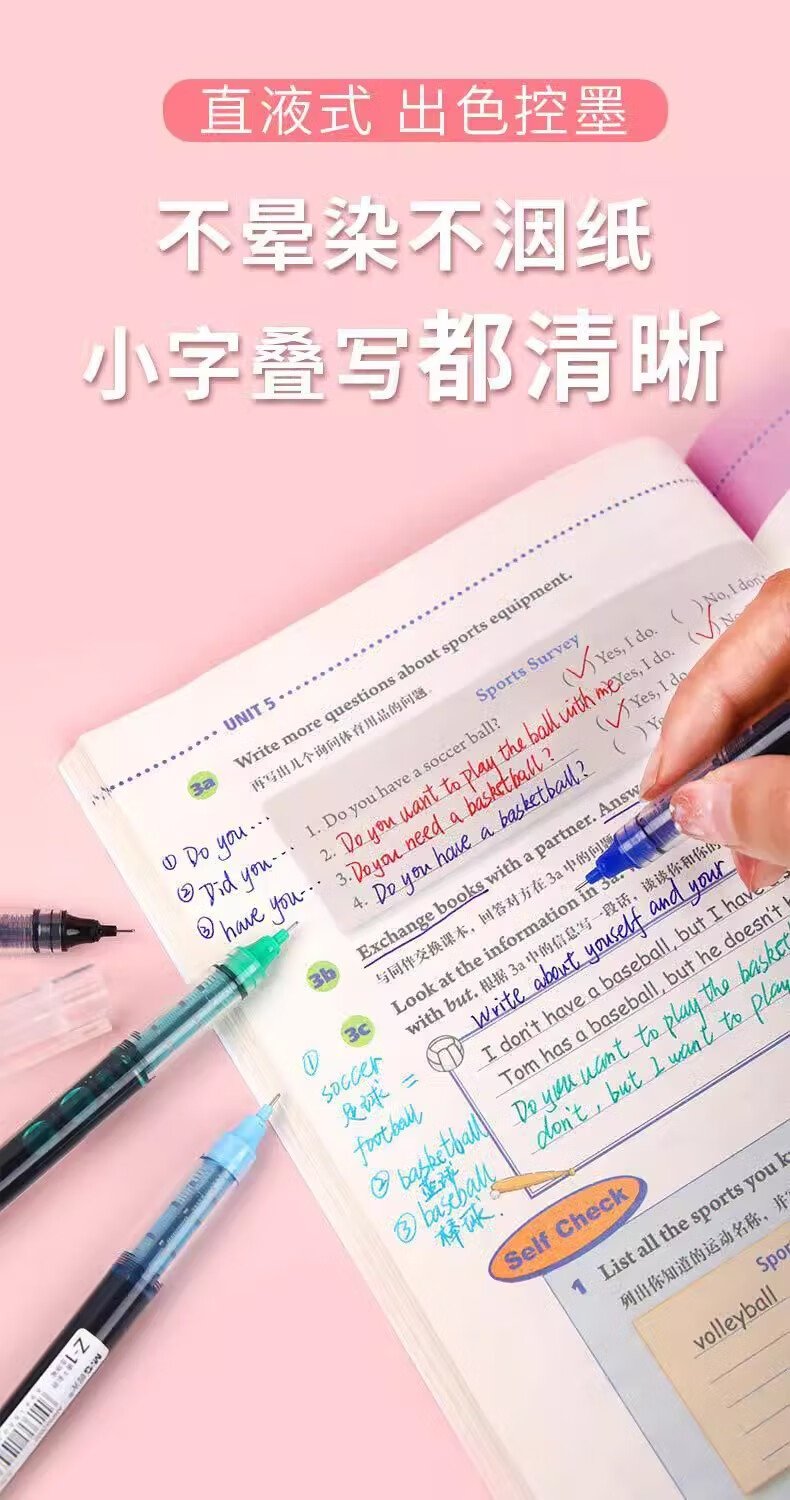 直液式 出色控墨
不晕染不洇纸
小字叠写都清晰
UNIT 5
3a
Write more questions about sports equipment.
再写出几个询问体育用品的问题。
Sports Survey
1. Do you have a soccer ball?
(✓) Yes, I do. ( ) No, I don't
2. Do you want to play the ball with me
( ) Yes, I do. (✓) No
3. Do you need a basketball?
(✓) Yes, I do
4. Do you have a basketball?
( ) Ye
① Do you...
② Did you...
③ have you...
3b
Exchange books with a partner. Answ
与同伴交换课本，回答对方在 3a 中的问题
3c
Look at the information in 3a.
with but. 根据 3a 中的信息写一段话，谈谈你和你的
Write about youself and your
I don't have a baseball, but I have
Tom has a baseball, but he doesn't h
Do you want to play the basket
don't, but I want to play
①
soccer
足球 =
football
② basketball
篮球
③ baseball
棒球.
Self Check
1 List all the sports you k
列出你知道的运动名称，并
Spor
volleyball
M&G
Z-1